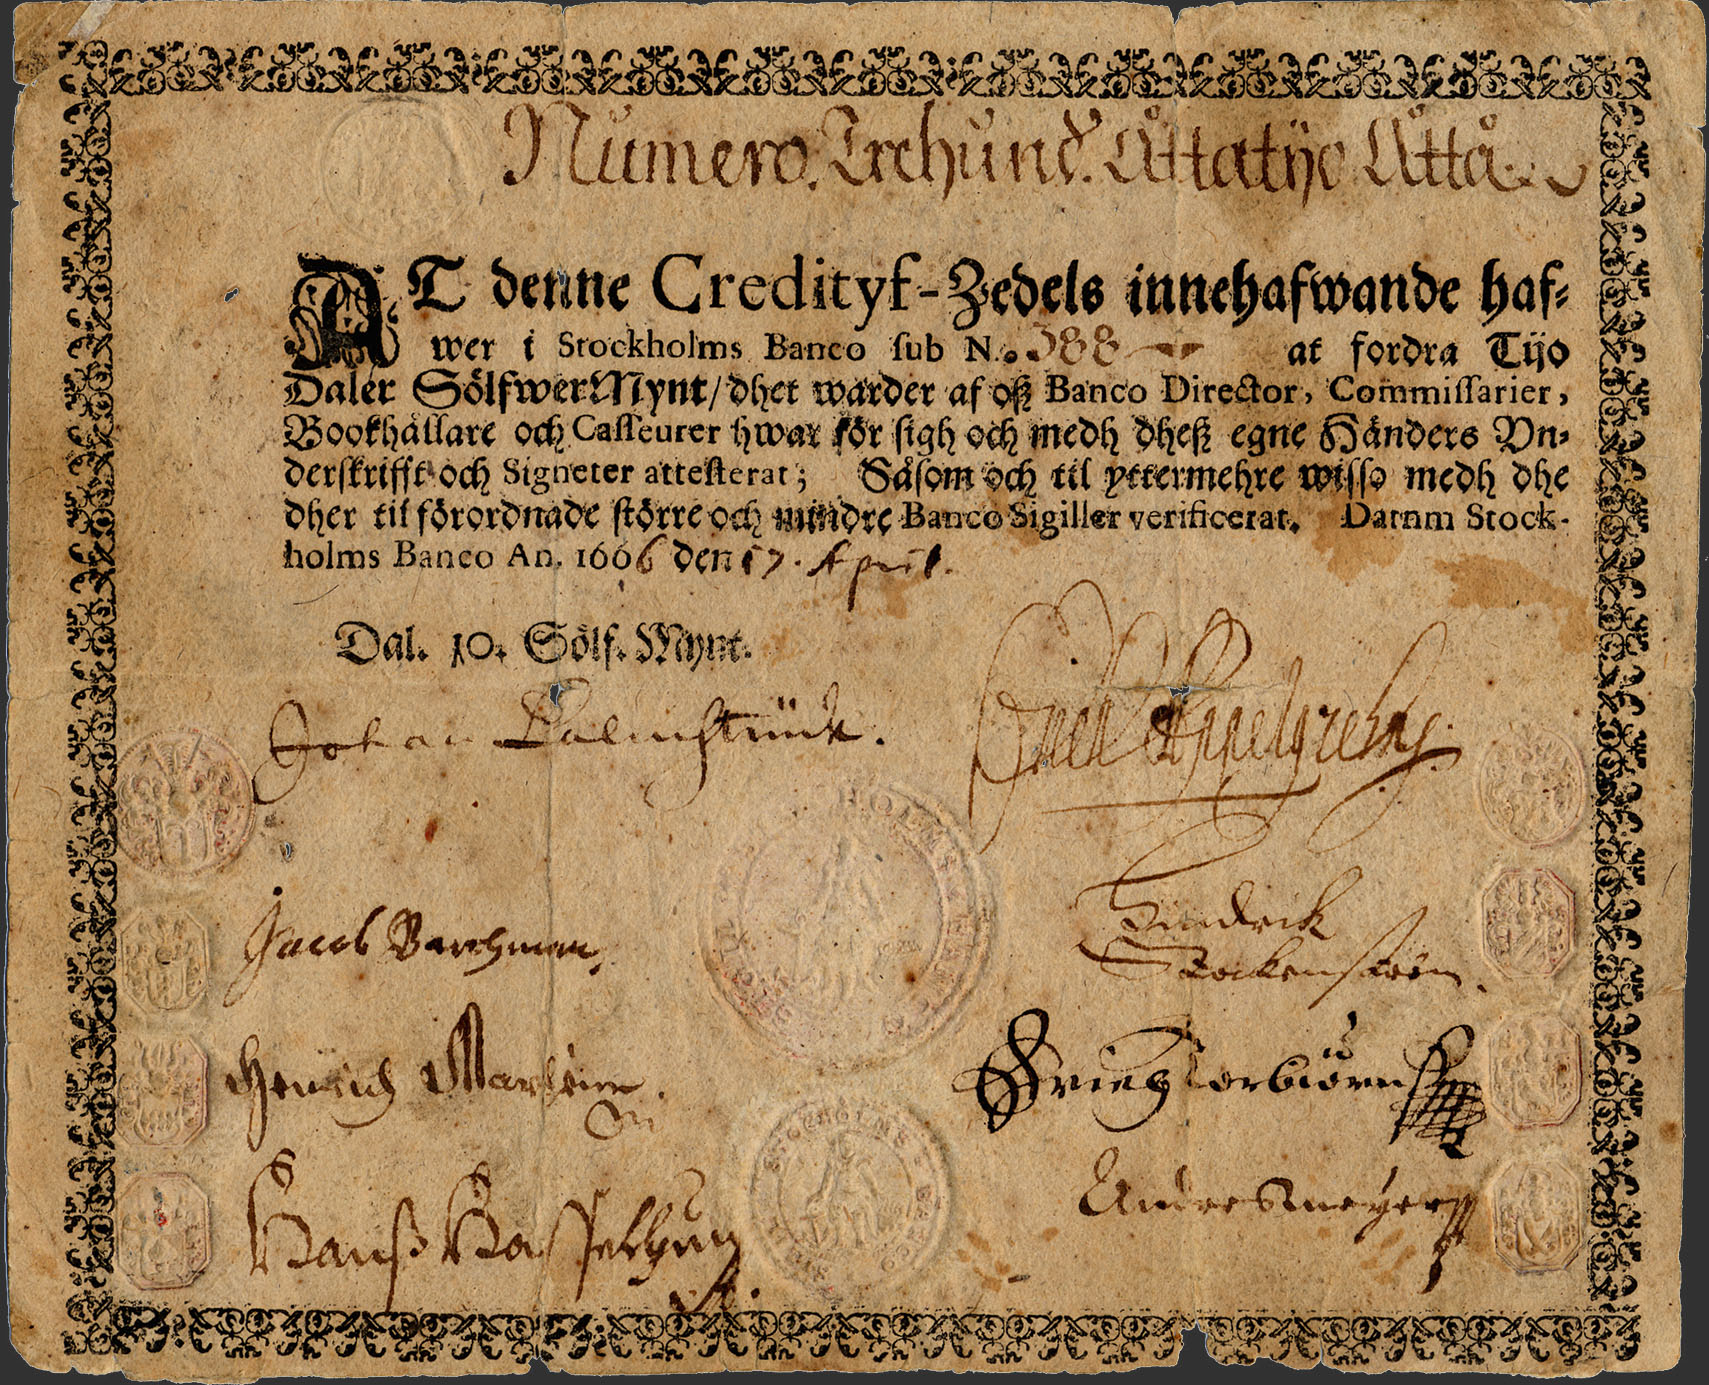 Numero. Trehund. Åttatijo Åtta
AT denne Credityf-Zedels innehafwande haf-
wer i Stockholms Banco sub N.o 388 at fordra Tijo
Daler SölfwerMynt/ dhet warder af oß Banco Director, Commissarier,
Bookhållare och Casseurer hwar för sigh och medh dheß egne Händers Vn-
derskrifft och Signeter attesterat; Såsom och til yttermehre wisso medh dhe
dher til förordnade större och mindre Banco Sigiller verificerat. Datum Stock-
holms Banco An. 1666 den 17. April.
Dal. 10. Sölf. Mynt.
Johan Palmstruck.
Jacob Barchman.
Hindrick
Stockenström.
Henrich
Andres meyer